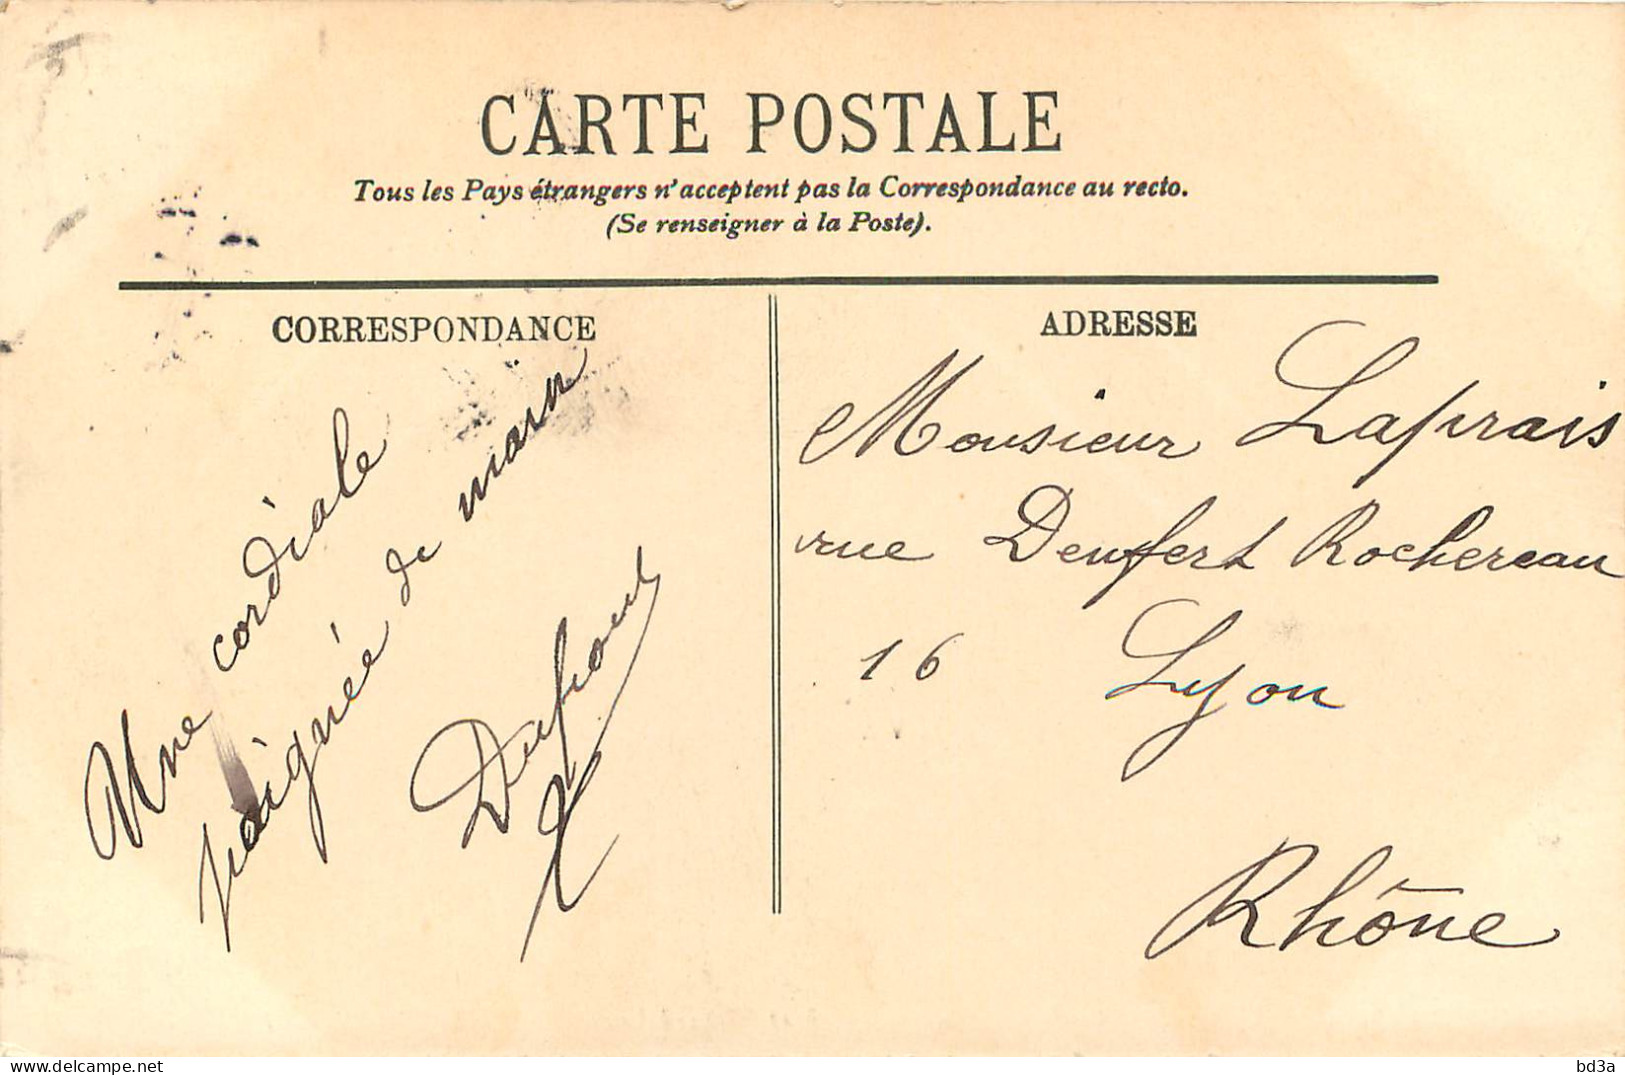 CARTE POSTALE
Tous les Pays étrangers n'acceptent pas la Correspondance au recto.
(Se renseigner à la Poste).
CORRESPONDANCE
Une cordiale
poignée de main
ADRESSE
Monsieur Laprais
rue Denfert Rochereau
16 Lyon
Rhône
delcampe.net
bd3a